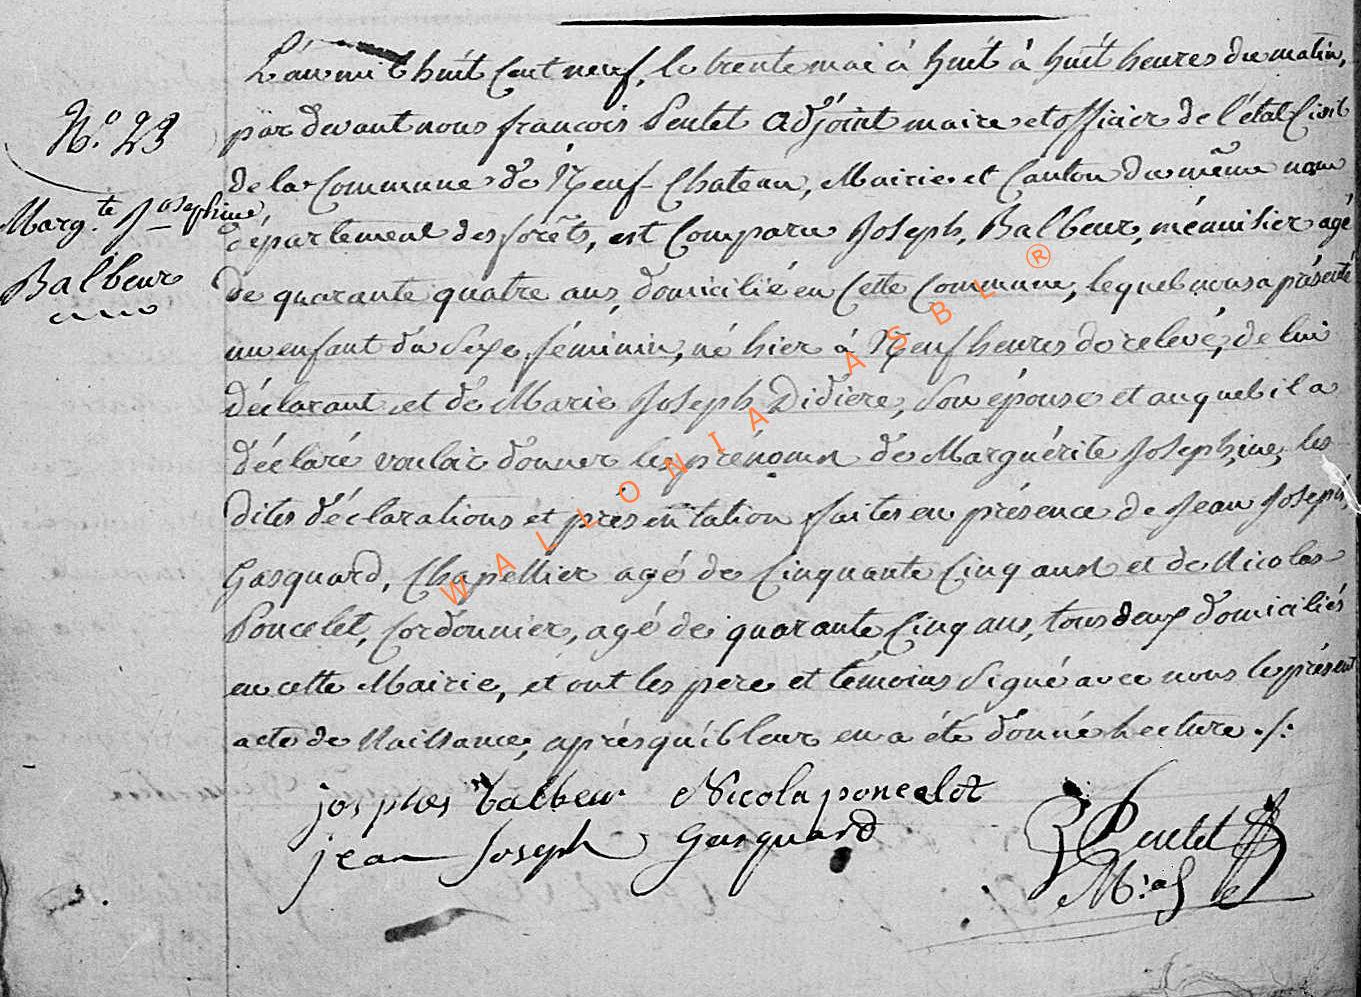 L'an mil huit Cent neuf, le trente mai à huit à huit heures du matin,
par devant nous françois Pentet Adjoint maire et officier de l'état Civil
N.º 23
de la Commune de Neuf-Chateau, Mairie et Canton du même nom
Marg.te Josephine
département des forêts, est Comparu Joseph, Balbeur, ménuisier agé
Balbeur
de quarante quatre ans, domicilié en Cette Commune, lequel nous a présenté
un enfant du Sexe féminin, né hier à Neuf heures de relevé, de lui
déclarant et de Marie Joseph Didiere, Son épouse et auquel il a
déclaré vouloir donner les prénoms de Marguérite Josephine, les
dites déclarations et présentation faites en présence de Jean Joseph
Gasquard, Chapellier agé de Cinquante Cinq ans et de Nicolas
Poncelet, Cordonnier, agé de quarante Cinq ans, tous deux domiciliés
en cette Mairie, et ont les père et témoins Signé avec nous le présent
acte de Naissance, après qu'il leur en a été donné Lecture ./:
josphes balbeur Nicola poncelet
jean Joseph Gasquard
WALLONIA ASBL ®